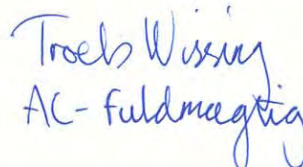 Troels Wissing
AC-fuldmægtig